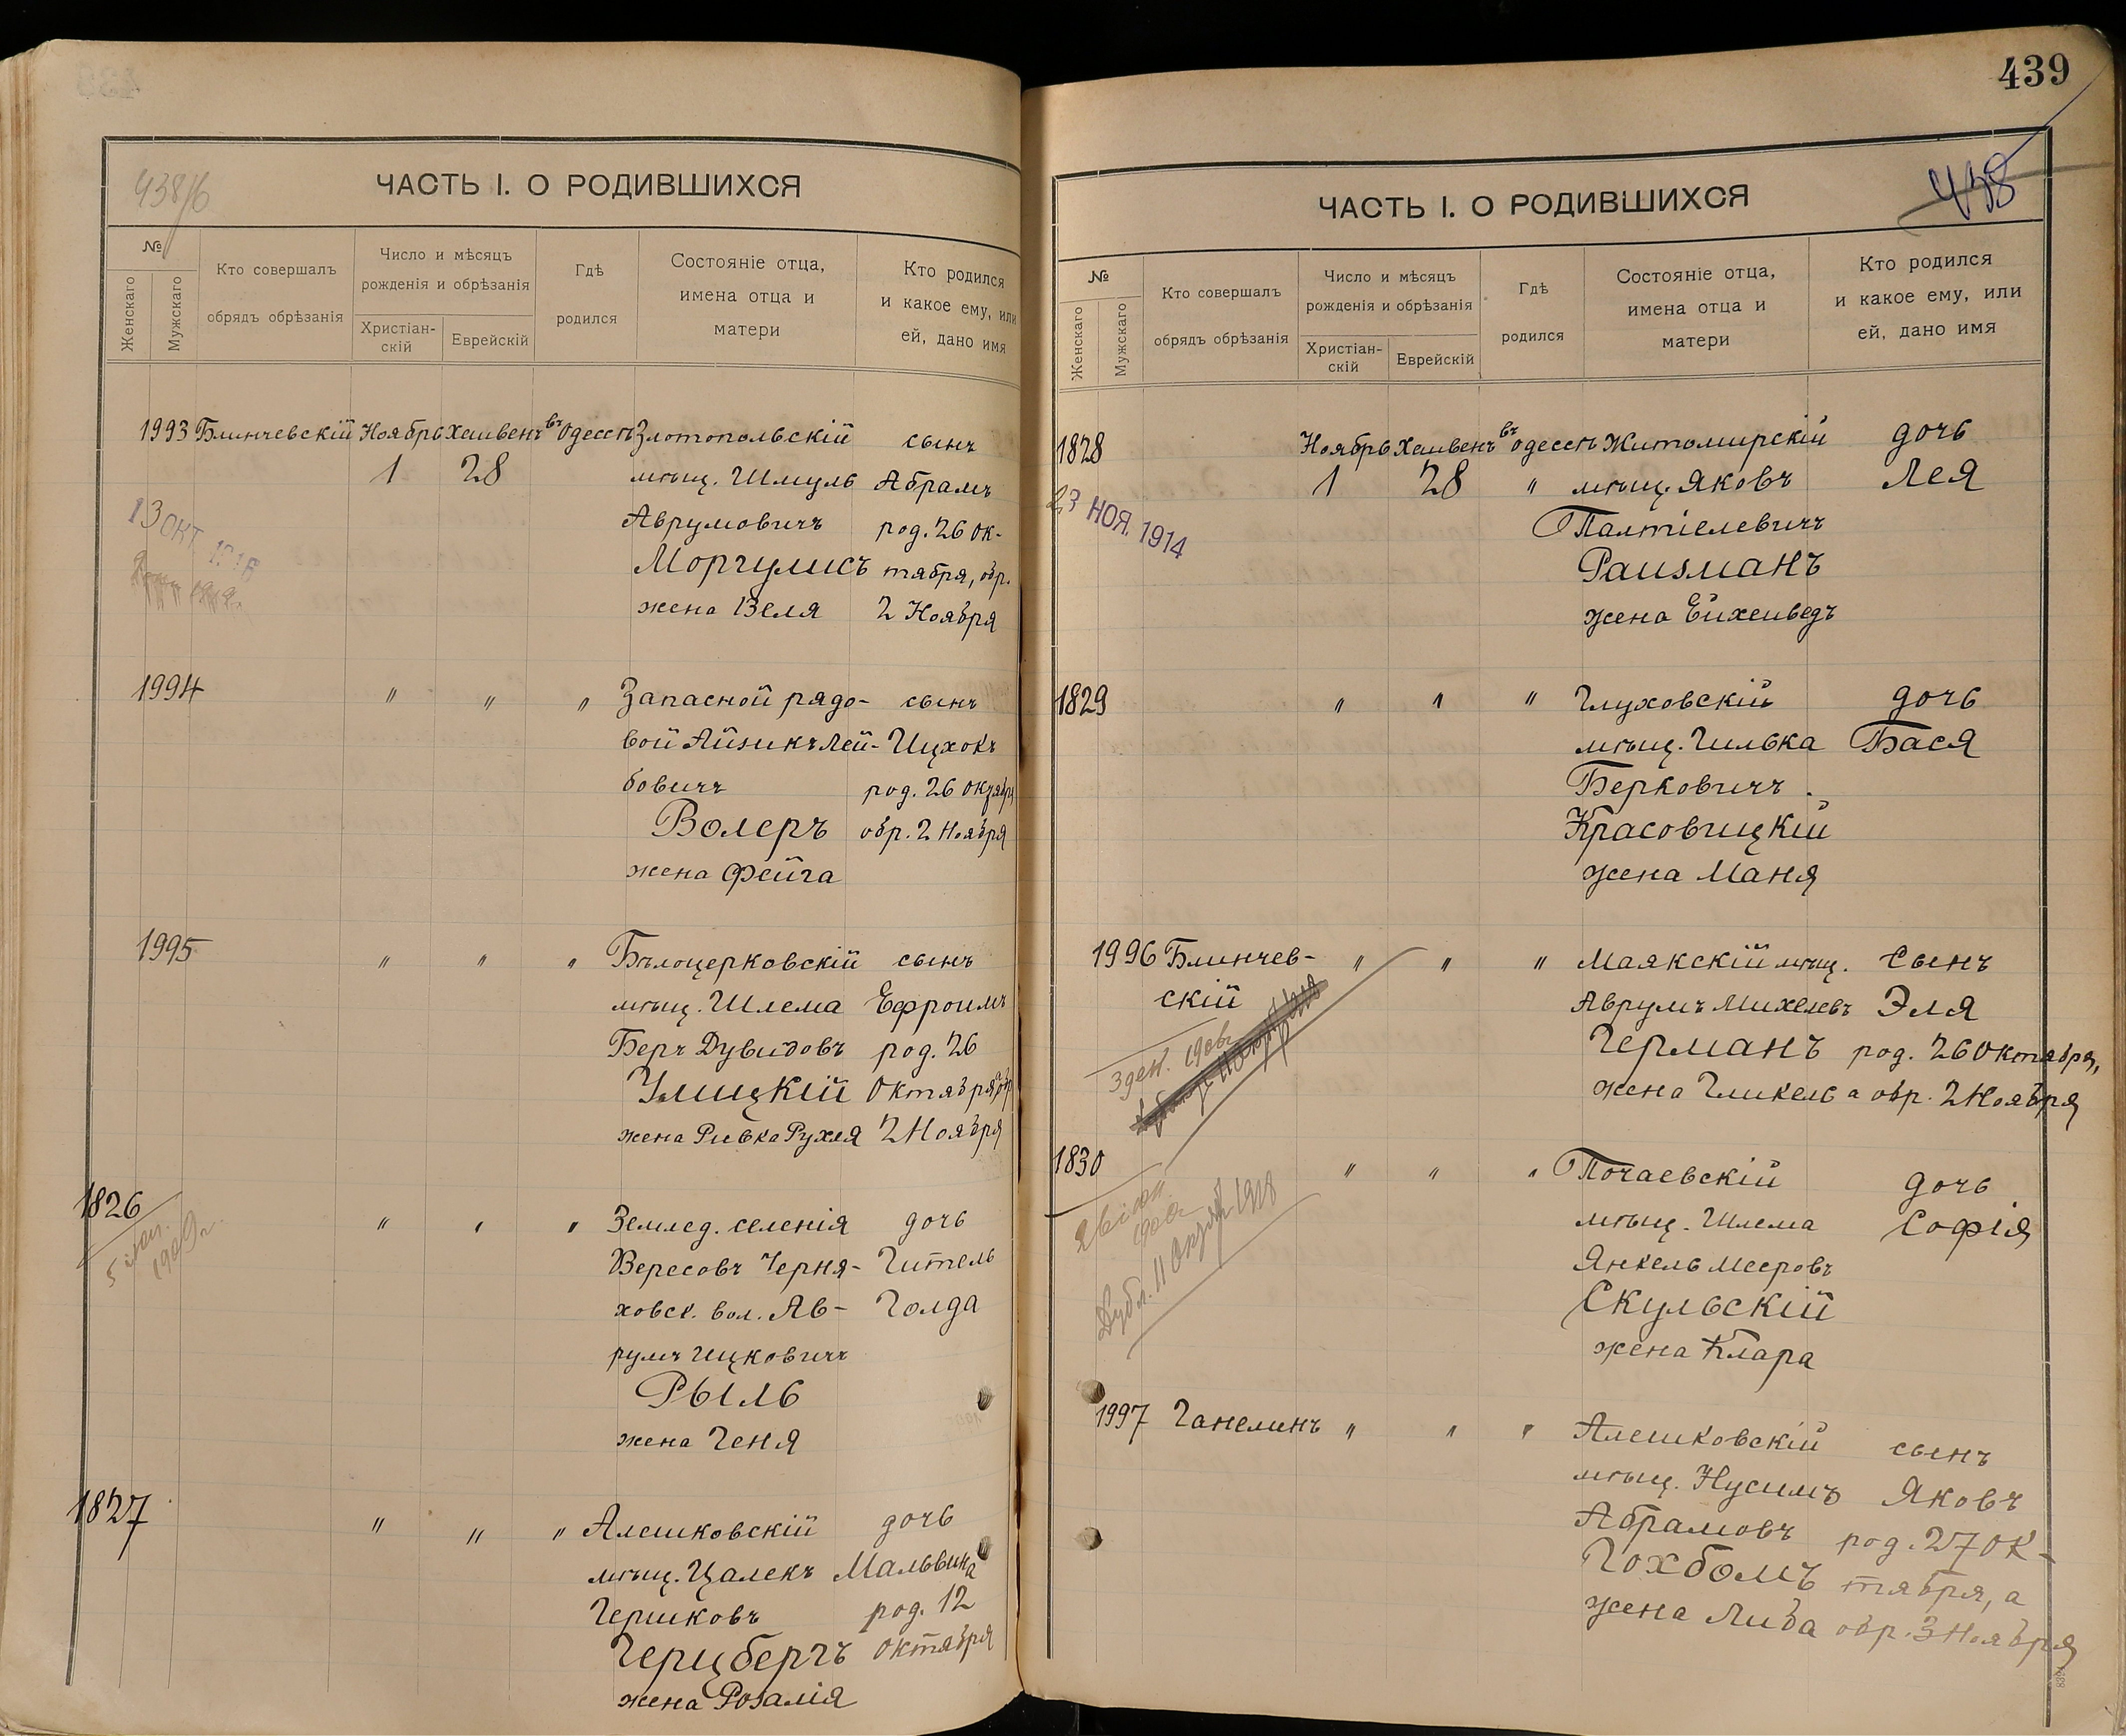 438/б
ЧАСТЬ I. О РОДИВШИХСЯ
№
Женскаго
Мужскаго
Кто совершалъ
обрядъ обрѣзанія
Число и мѣсяцъ
рожденія и обрѣзанія
Христіан-
скій
Еврейскій
Гдѣ
родился
Состояніе отца,
имена отца и
матери
Кто родился
и какое ему, или
ей, дано имя
1993 Блинчевскій Ноябрь Хешвенъ въ Одессѣ Златопольскій сынъ
1 28 мѣщ. Шмуль Абрамъ
13 ОКТ. 1916
Аврумовичъ род. 26 Ок-
Моргулисъ тября, обр.
жена Веля 2 Ноября
1994 " " " Запасной рядо- сынъ
вой Айзикъ Лей- Ицхокъ
бовичъ род. 26 октября
Волеръ обр. 2 Ноября
жена Фейга
1995 " " " Бѣлоцерковскій сынъ
мѣщ. Шлема Ефроимъ
Беръ Дувидовъ род. 26
Улицкій Октября, обр
жена Ривка Рухля 2 Ноября
1826 " " " Землед. селенія дочь
Вересовъ Черня- Гитель
ховск. вол. Ав- Голда
румъ Ицковичъ
Рыль
жена Геня
1827 " " " Алешковскій дочь
мѣщ. Цалекъ Мальвина
Гершковъ род. 12
Герцбергъ октября
жена Розалія
439
438
ЧАСТЬ I. О РОДИВШИХСЯ
№
Женскаго
Мужскаго
Кто совершалъ
обрядъ обрѣзанія
Число и мѣсяцъ
рожденія и обрѣзанія
Христіан-
скій
Еврейскій
Гдѣ
родился
Состояніе отца,
имена отца и
матери
Кто родился
и какое ему, или
ей, дано имя
1828 Ноябрь Хешвенъ въ Одессѣ Житомирскій дочь
1 28 " мѣщ. Яковъ Лея
23 НОЯ. 1914
Палтіелевичъ
Раизманъ
жена Ейхеведъ
1829 " " " Глуховскій дочь
мѣщ. Гилька Бася
Берковичъ
Красовицкій
жена Маня
1996 Блинчев- " " " Маякскій мѣщ. сынъ
скій Аврумъ Михелевъ Эля
Германъ род. 26 Октября,
жена Гликель а обр. 2 Ноября
1830 " " " Почаевскій дочь
мѣщ. Шлема Софія
Янкель Мееровъ
Дубл. 11 Апрѣля 1918
Скульскій
жена Клара
1997 Ганелинъ " " " Алешковскій сынъ
мѣщ. Нусимъ Яковъ
Абрамовъ род. 27 Ок-
Гохбомъ тября, а
жена Либа обр. 3 Ноября